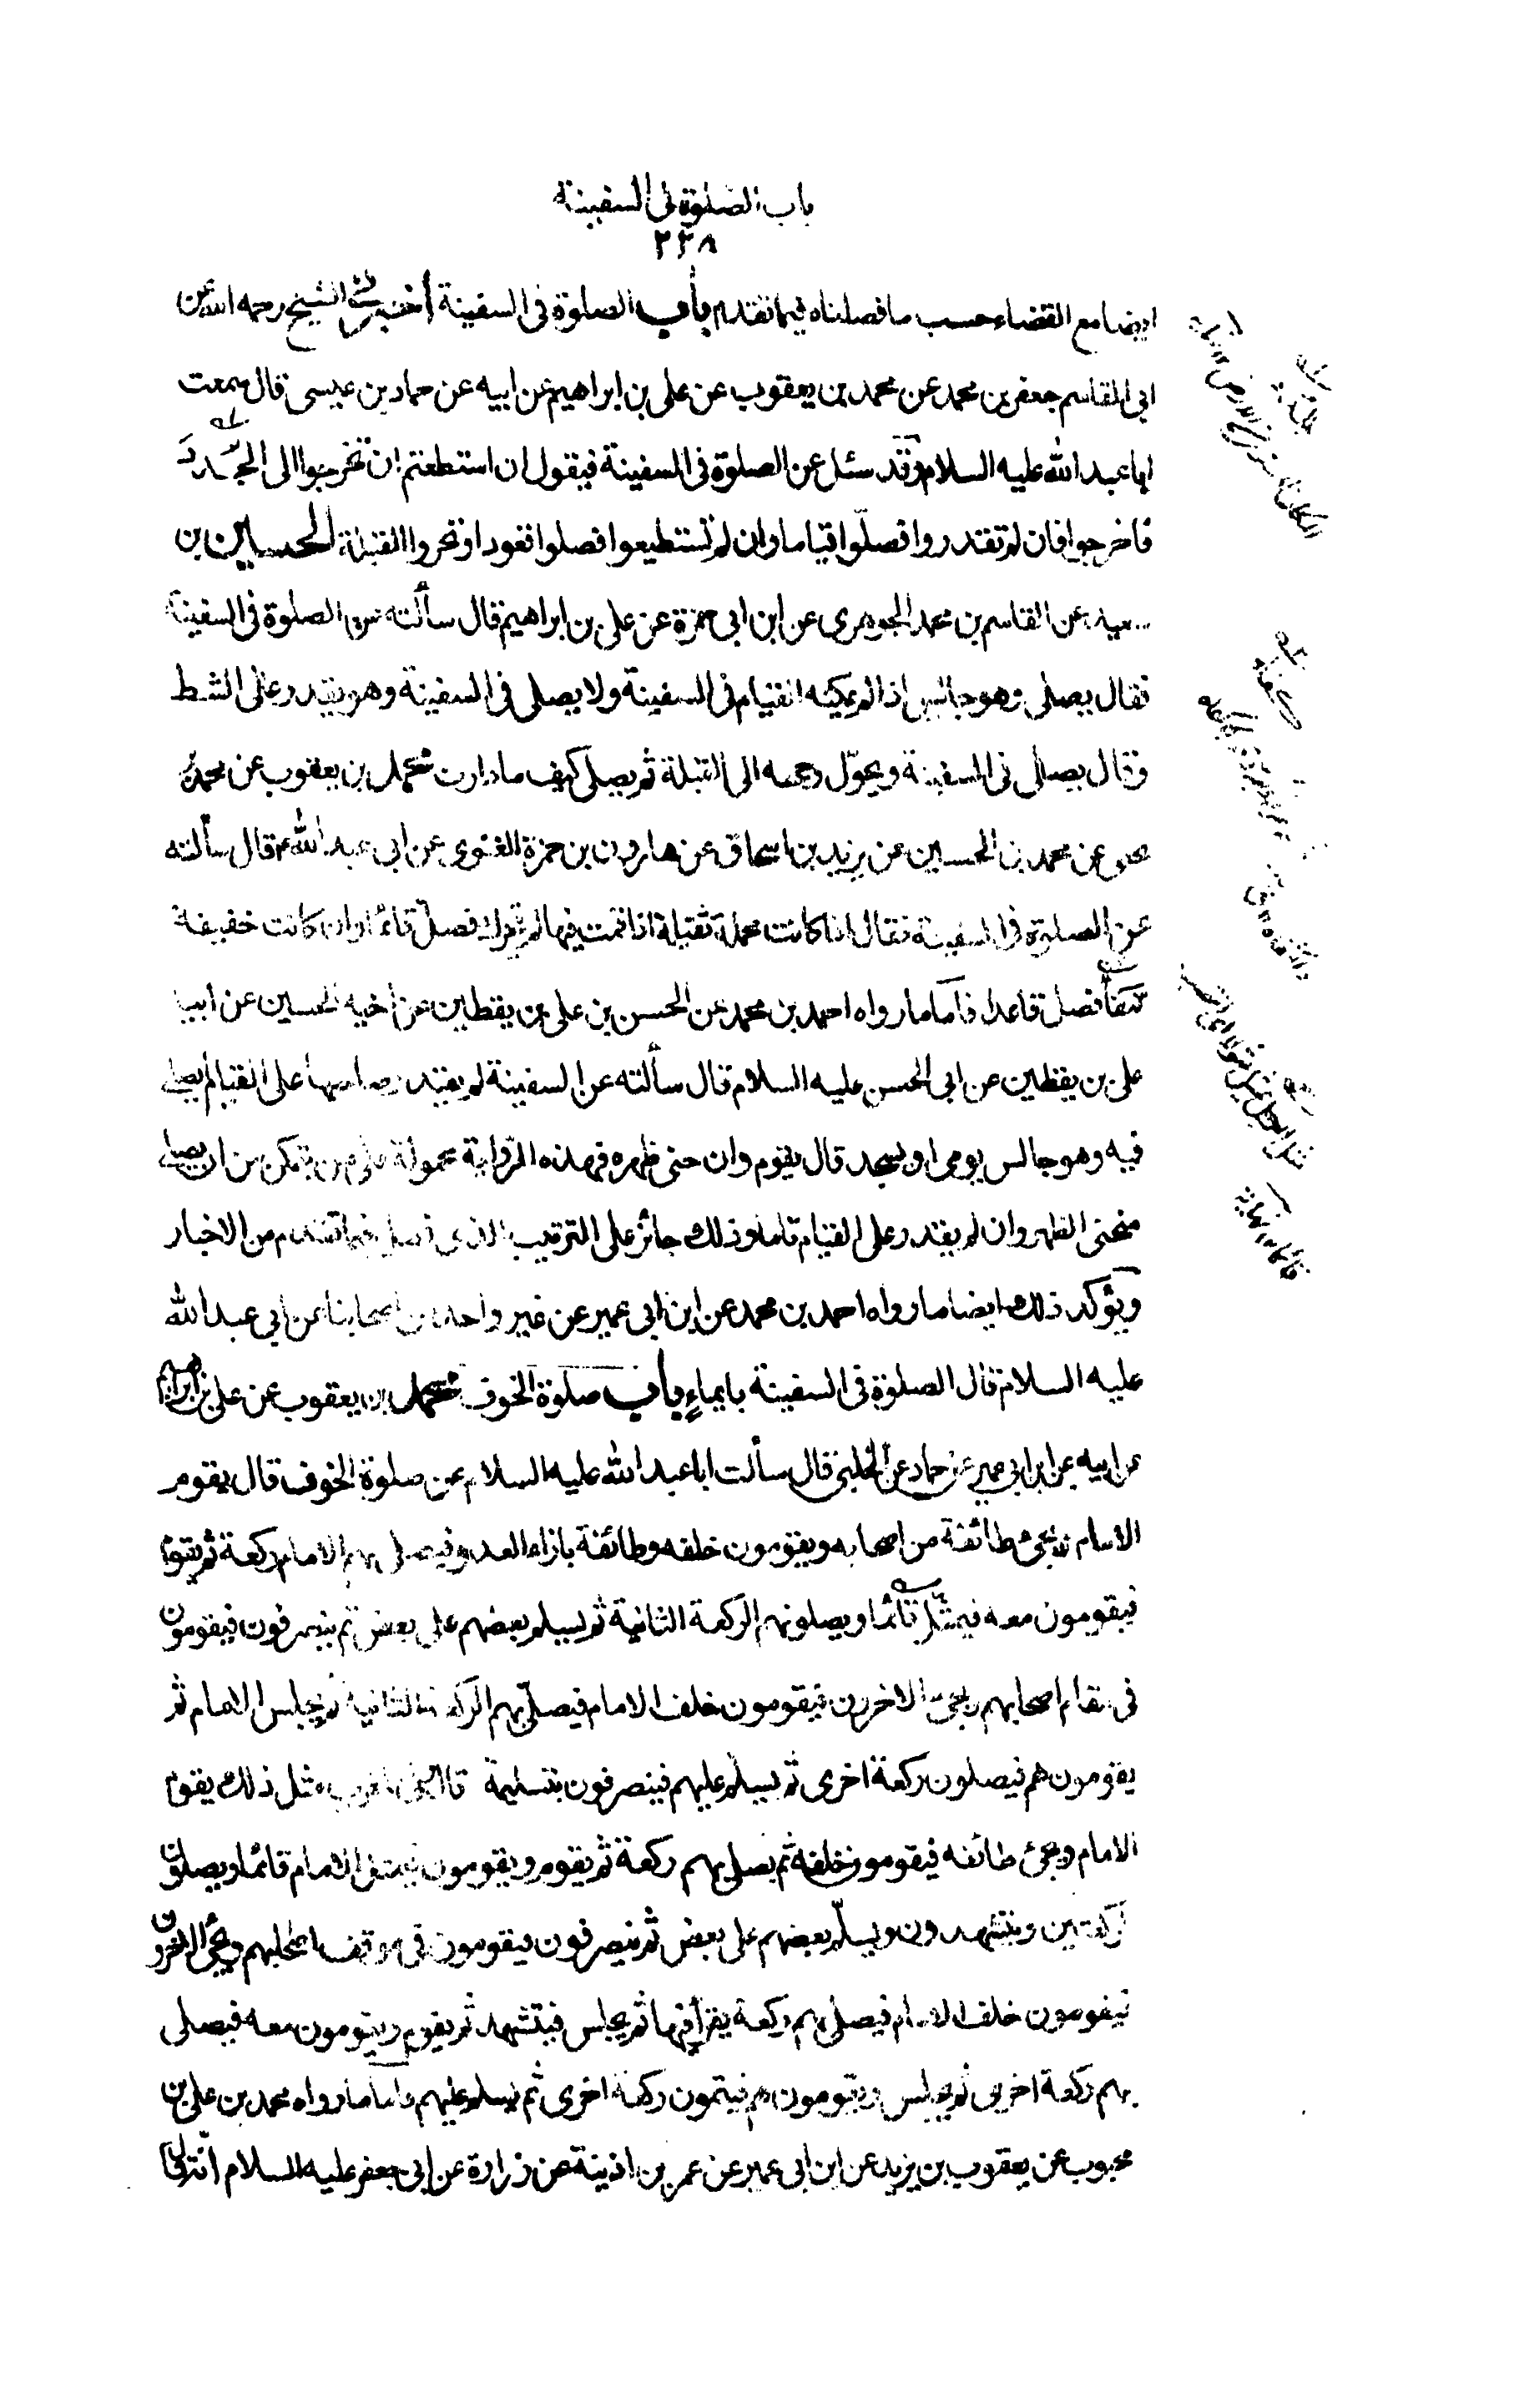 باب الصلوة فى السفينة
٢٣٨
ايضا مع القضاء حسب ما فصلناه فيما تقدم باب الصلوة فى السفينة أخبرنى الشيخ رحمه الله عن
ابى القاسم جعفر بن محمد عن محمد بن يعقوب عن على بن ابراهيم عن ابيه عن حماد بن عيسى قال سمعت
ابا عبد الله عليه السلام وقد سئل عن الصلوة فى السفينة فيقول ان استطعتم ان تخرجوا الى الجدد
فاخرجوا فان لم تقدروا فصلّوا قياما وان لم تستطيعوا فصلوا قعودا وتحروا القبلة الحسين بن
سعيد عن القاسم بن محمد الجوهرى عن ابن ابى حمزة عن على بن ابراهيم قال سألته عن الصلوة فى السفينة
فقال يصلى وهو جالس اذا لم يمكنه القيام فى السفينة ولا يصلى فى السفينة وهو يقدر على الشط
وقال يصلى فى السفينة ويحوّل وجهه الى القبلة ثم يصلى كيف ما دارت محمد بن يعقوب عن محمد بن
يحيى عن محمد بن الحسين عن يزيد بن اسحاق عن هارون بن حمزة الغنوى عن ابى عبد الله ع قال سألته
عن الصلوة فى السفينة فقال اذا كانت محملة ثقيلة اذا قمت فيها لم تحرك فصلّ قائما وان كانت خفيفة
تكفأ فصل قاعدا فأما ما رواه احمد بن محمد عن الحسن بن على بن يقطين عن اخيه الحسين عن ابيه
على بن يقطين عن ابى الحسن عليه السلام قال سألته عن السفينة لم يقدر صاحبها على القيام أيصلى
فيه وهو جالس يومى او يسجد قال يقوم وان حنى ظهره فهذه الرّواية محمولة على من يتمكن من ان يصلى
منحنى الظهر وان لم يقدر على القيام تاما وذلك جائز على الترتيب الذى فصل فيما تقدم من الاخبار
ويؤكد ذلك ايضا ما رواه احمد بن محمد عن ابن ابى عمير عن غير واحد من اصحابنا عن ابى عبد الله
عليه السلام قال الصلوة فى السفينة بايماءٍ باب صلوة الخوف محمد بن يعقوب عن على بن ابراهيم
عن ابيه عن ابن ابى عمير عن حماد عن الحلبى قال سألت ابا عبد الله عليه السلام عن صلوة الخوف قال يقوم
الامام ويجئ طائفة من اصحابه ويقومون خلفه وطائفة بازاء العدو فيصلى بهم الامام ركعة ثم يقوم
فيقومون معه فيمثل قائما ويصلون هم الركعة الثانية ثم يسلم بعضهم على بعض ثم ينصرفون فيقومون
فى مقام اصحابهم ويجئ الاخرون فيقومون خلف الامام فيصلّى بهم الركعة الثانية ثم يجلس الامام ثم
يقومون هم فيصلون ركعة اخرى ثم يسلم عليهم فينصرفون بتسليمة قال وفى المغرب مثل ذلك يقوم
الامام ويجئ طائفه فيقومون خلفه ثم يصلى بهم ركعة ثم يقوم ويقومون فيمثل الامام قائما ويصلون
ركعتين ويتشهدون ويسلّم بعضهم على بعض ثم ينصرفون فيقومون فى موقف اصحابهم ويجئ الاخرون
فيقومون خلف الامام فيصلى بهم ركعة يقرأ فيها ثم يجلس فيتشهد ثم يقوم ويقومون معه فيصلى
بهم ركعة اخرى ثم يجلس ويقومون هم فيتمون ركعة اخرى ثم يسلم عليهم وأما ما رواه محمد بن على بن
محبوب عن يعقوب بن يزيد عن ابن ابى عمير عن عمر بن اذينة عن زرارة عن ابى جعفر عليه السلام